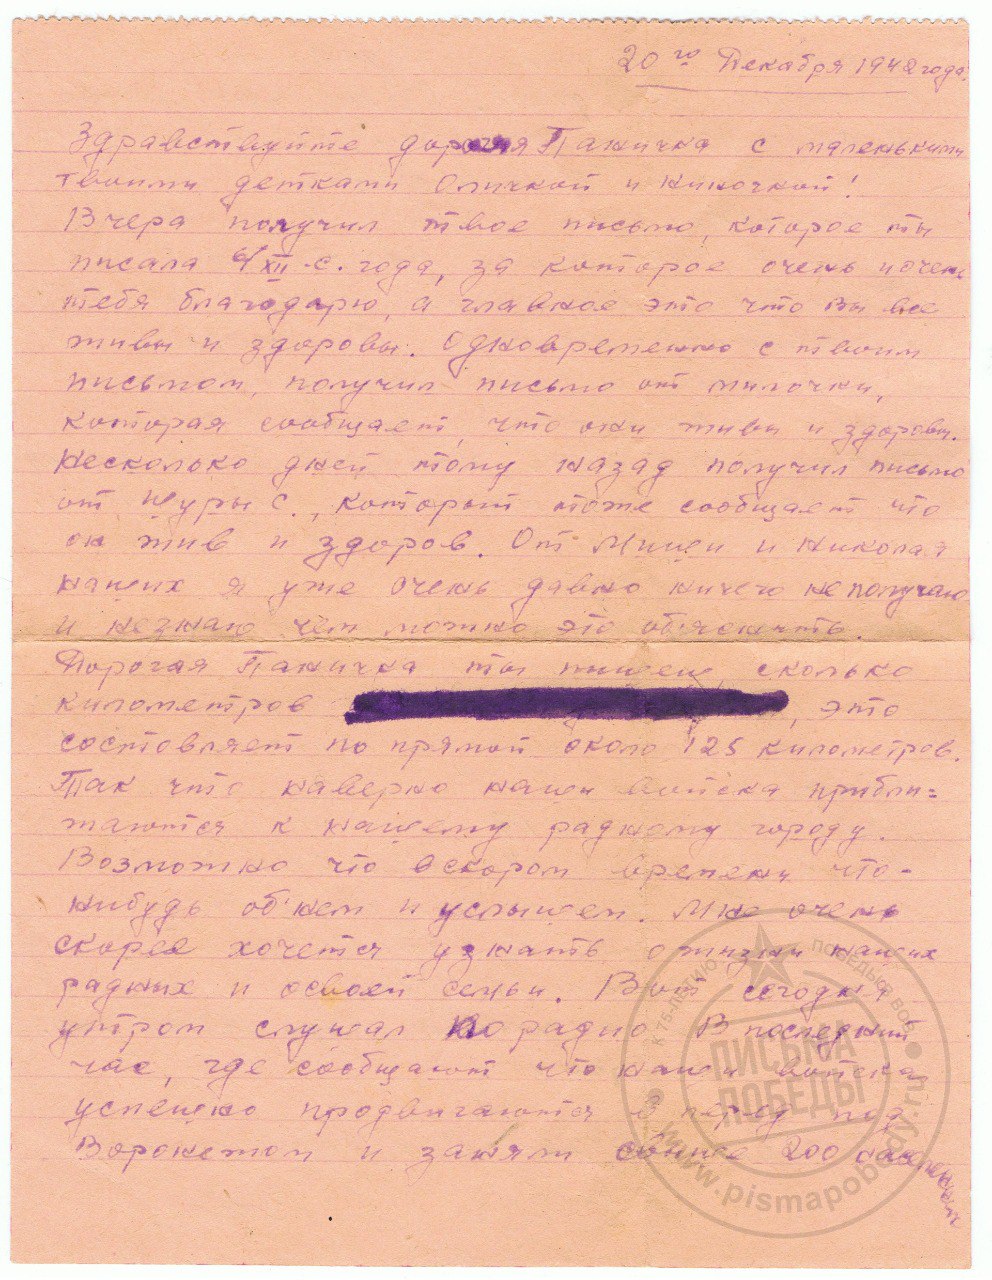 20го Декабря 1942 года.
Здравствуйте дорогая Паничка с маленькими
твоими детками Оличкой и Ниночкой!
Вчера получил твое письмо, которое ты
писала 6/XII с. года, за которое очень и очень
тебя благодарю, а главное это что вы все
живы и здоровы. Одновременно с твоим
письмом, получил письмо от милочки,
которая сообщает, что они живы и здоровы.
Несколько дней тому назад получил письмо
от Шуры С., который тоже сообщает что
он жив и здоров. От Миши и Николая
наших я уже очень давно ничего не получаю
и незнаю чем можно это объяснить.
Дорогая Паничка ты пишеш, сколько
километров , это
состовляет по прямой около 125 километров.
Так что наверно наши войска прибли=
жаются к нашему радному городу.
Возможно что вскором времени что-
нибудь об'нем и услышем. Мне очень
скорее хочется узнать о жизни наших
радных и освоей семьи. Вот сегодня
утром слушал по радио В последний
час, где сообщают что наши войска
успешно продвигаются в перед под
Воронежом и заняли более 200
К 75-ЛЕТИЮ ПОБЕДЫ В ВОВ
ПИСЬМА
ПОБЕДЫ
www.pismapobedy.ru